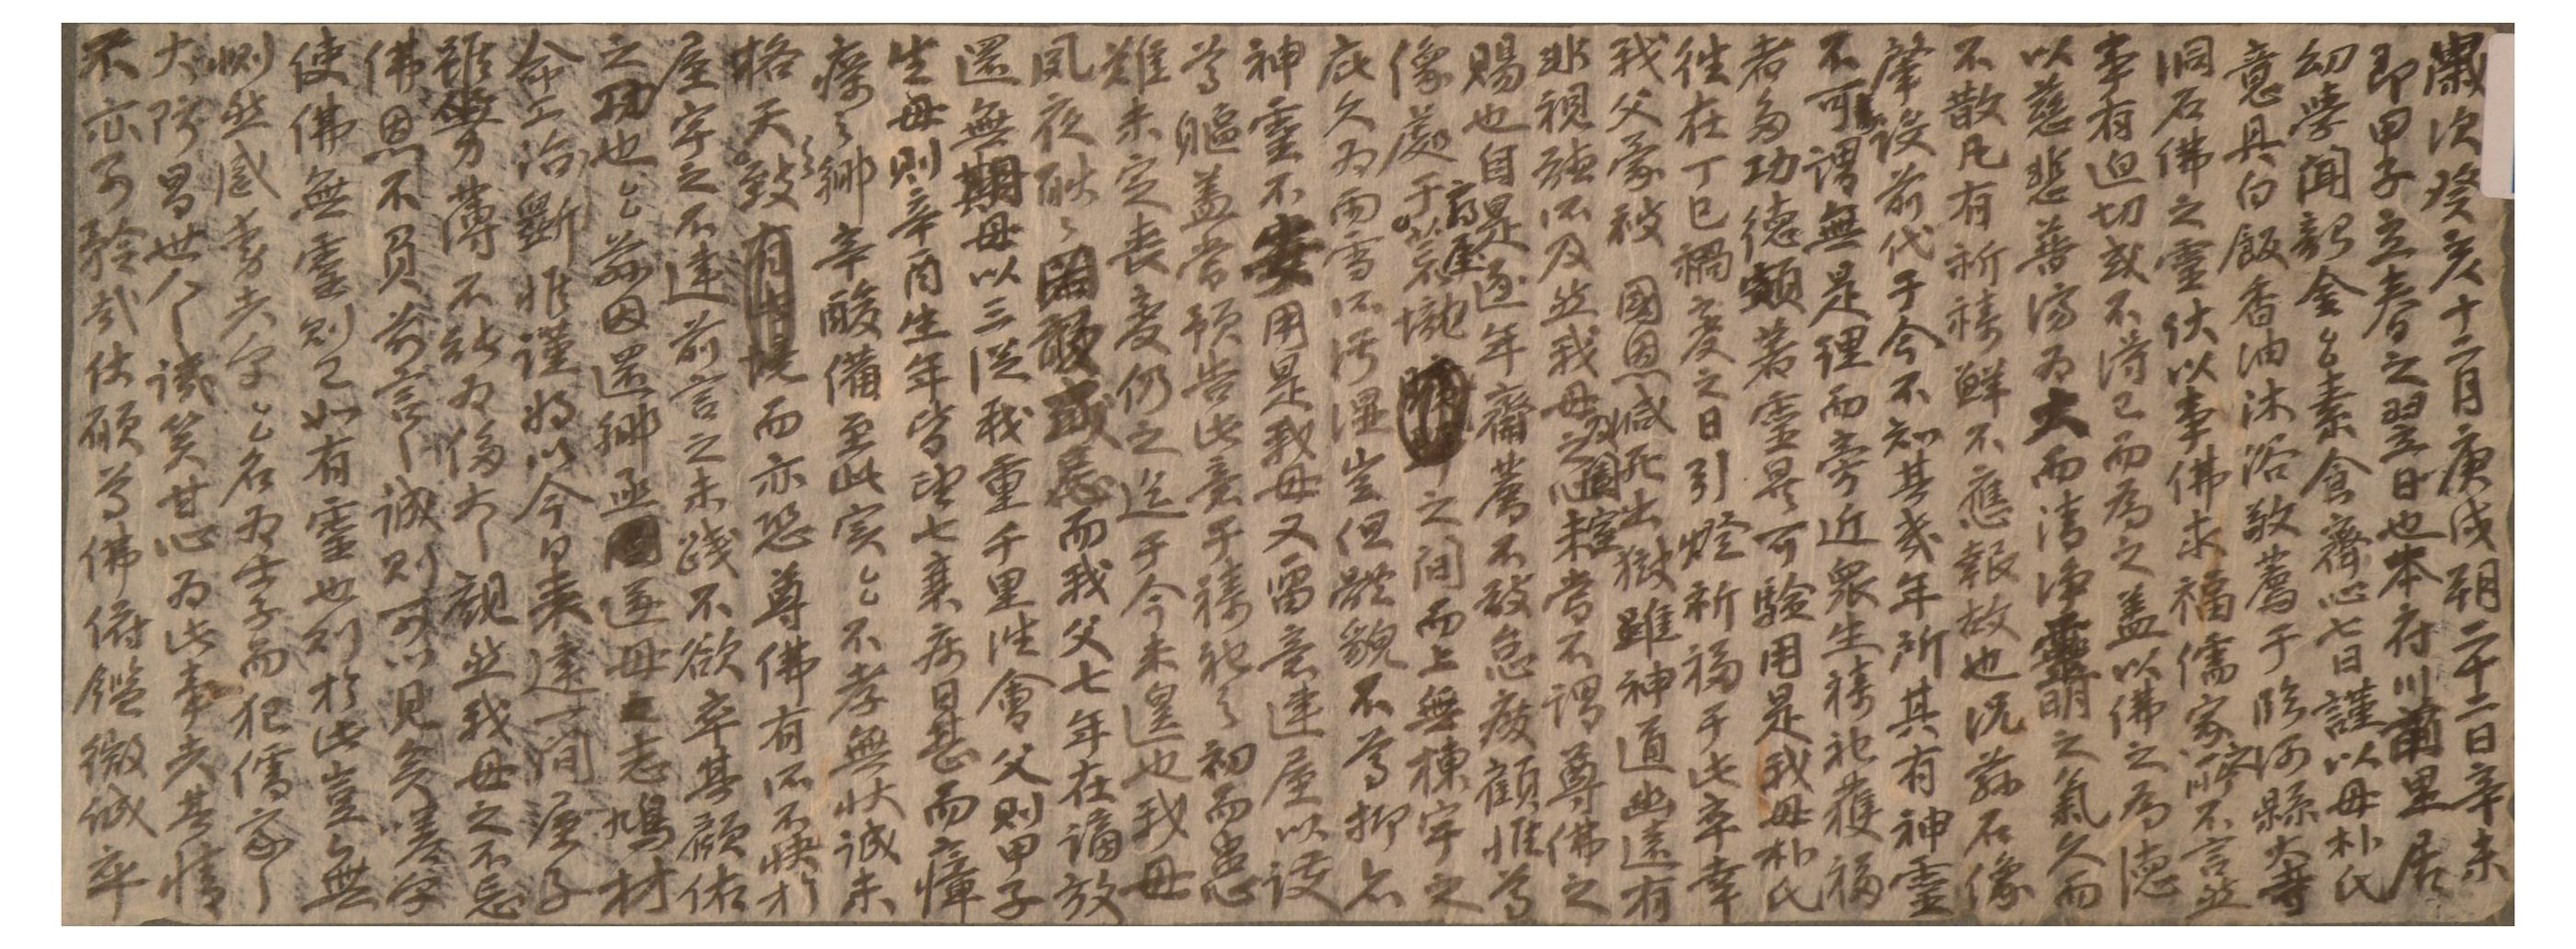 歲次癸亥十二月庚戌朔二十二日辛未
即甲子立春之翌日也本府川前里居
幼學聞韶金〻素食齋心七日謹以母朴氏
意具白飯香油沐浴敬薦于臨河縣大寺
洞石佛之靈伏以事佛求福儒家所不言然
事有迫切或不得已而為之盖以佛之為德
以慈悲普濟為大而清淨靈明之氣久而
不散凡有祈禱鮮不應報故也況茲石像
肇設前代于今不知其幾年所其有神靈
不可謂無是理而旁近衆生禱祀獲福
者多功德顯著靈異可驗用是我母朴氏
往在丁巳禍變之日引燈祈福于此卒幸
我父蒙被國恩减死出獄雖神道幽遠有
非視聽所及然我母之心未嘗不謂尊佛之
賜也自是逐年齋薦不敢怠廢顧惟尊
像處于荒壠之間而上無棟宇之
庇久為雨雪所汚湿豈但體貌不尊抑亦
神靈不安用是我母又留意建屋以護
尊軀盖常預告此意于禱祀之初而患
難未定喪變仍之迄于今未遑也我母
夙夜耿〻罔敢或忘而我父七年在謫放
還無期母以三從我重千里往會父則甲子
生母則辛酉生年皆望七衰病日甚而瘴
癘之鄉辛酸備至此實〻不孝無狀誠未
格天致有而亦恐尊佛有所不快於
屋宇之不建前言之未踐不欲卒其顧佑
之功也〻茲因還鄉亟遂母之志鳩材
命工治斲惟謹將以今日來建一間屋子
雖勢力薄不能為侈大觀然我母之不忘
佛恩不負前言之誠則可以見矣嗟乎
使佛無靈則已如有靈也則於此豈無
惻然感動者乎〻名為士子而犯儒家之
大防冒世人之譏笑甘心為此事夫其情
不亦可矜哉伏願尊佛俯鑑微誠卒